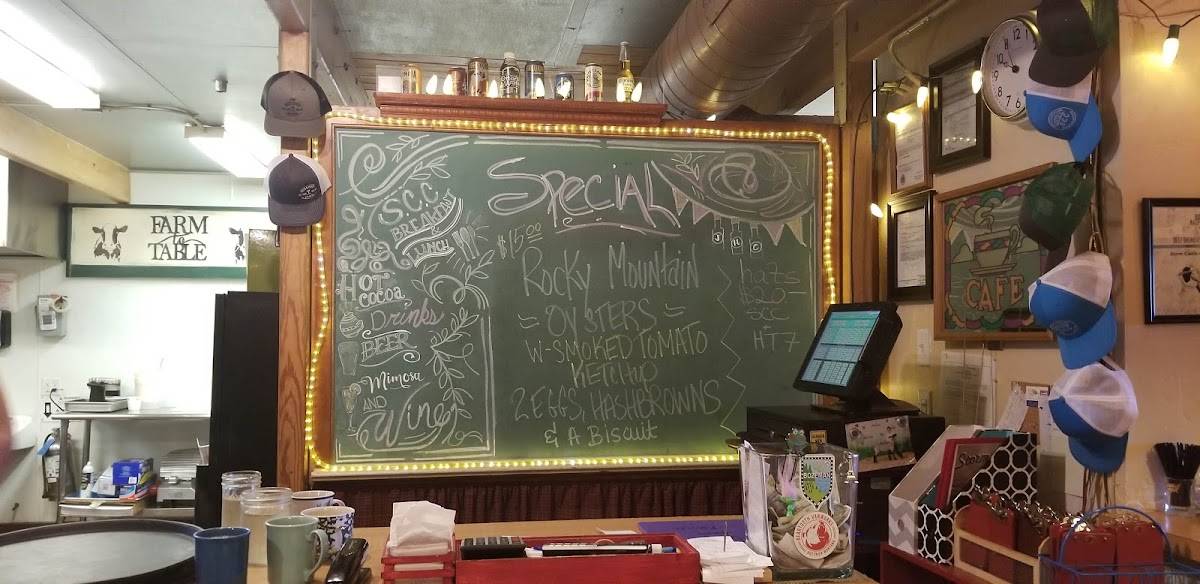 FARM
to
TABLE
S.C.C.
BREAKFAST
&
LUNCH
Hot
Cocoa
Drinks
BEER
Mimosa
AND
Wine
SPECIAL
$15.00
ROCKY MOUNTAIN
= OYSTERS =
W-SMOKED TOMATO
KETCHUP
2 EGGS, HASHBROWNS
& A BISCUIT
hats
$20-
SCC
+
HT7
CAFE